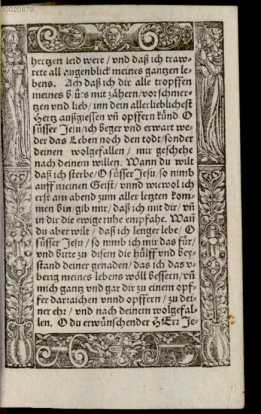 hertzen leid were / vñ daß ich traw-
rete all augenblick meines gantzen le-
bens. Ach daß ich dir alle tropffen
meines b. ů: s mit zähern / vor schmer-
tzen vnd lieb / inn dein allerlieblichest
Hertz außgiessen vñ opffern künd O
süsser Jesu / ich beger vnd erwart we-
der das Leben noch den todt / sonder
deinen wolgefallen / mir geschehe
nach deinem willen. Wann du wilt
daß ich sterbe / O süsser Jesu / so nimb
auff meinen Geist / vnnd wiewol ich
erst am abend zum aller letzten kom-
men bin / gib mir / daß ich mit dir / vñ
in dir die ewige ruhe empfahe. Wañ
du aber wilt / daß ich lenger lebe / O
süsser Jesu / so nimb ich mir das für /
vnd bitte zu disem die hülff vnd bey-
stand deiner genaden / das ich das v-
berig meines lebens wöll bessern / vñ
mich gantz vnd gar dir zu einem opf-
fer darraichen vnnd opffern / zu dei-
ner ehr / vnd nach deinem wolgefal-
len. O du erwünschender HErr Je-